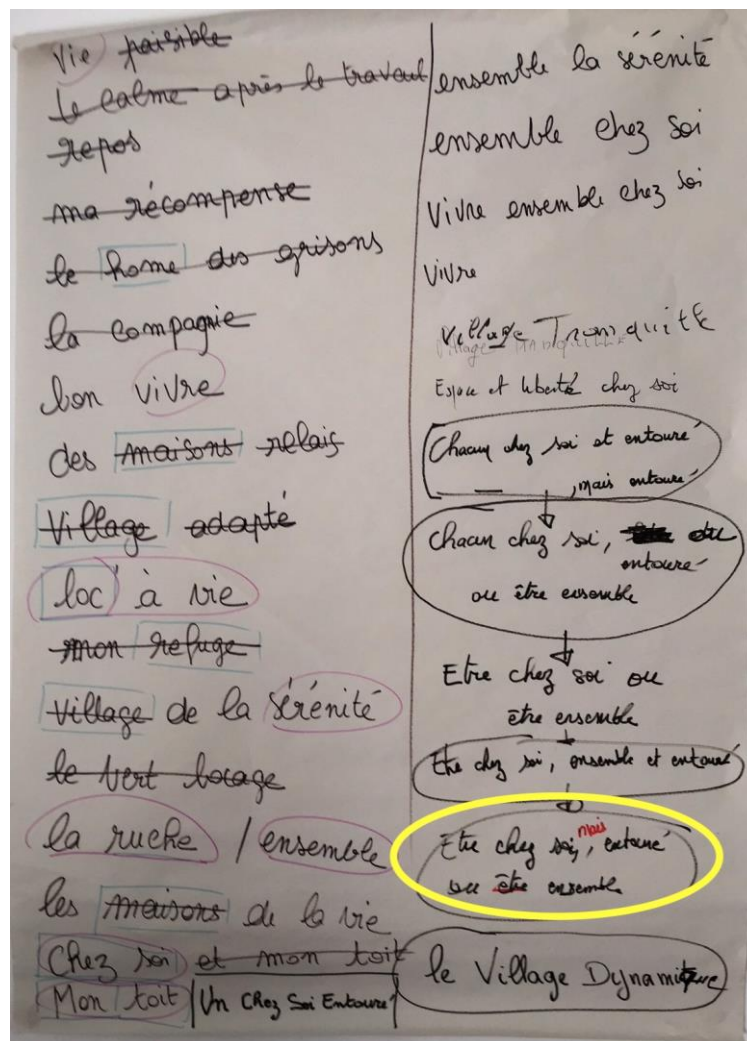 Vie paisible
le calme après le travail
repos
ma récompense
le home des grisons
la compagnie
bon vivre
des maisons relais
Village adapté
loc' à vie
mon refuge
village de la sérénité
le vert bocage
la ruche / ensemble
les maisons de la vie
Chez soi et mon toit
Mon toit | Un Chez Soi Entouré
ensemble la sérénité
ensemble chez soi
Vivre ensemble chez soi
Vivre
Village Tranquille
Espace et liberté chez soi
Chacun chez soi et entouré
, mais entouré
Chacun chez soi, ou
entouré
ou être ensemble
Etre chez soi ou
être ensemble
Etre chez soi, ensemble et entouré
mais
Etre chez soi, entouré
ou être ensemble
le Village Dynamique